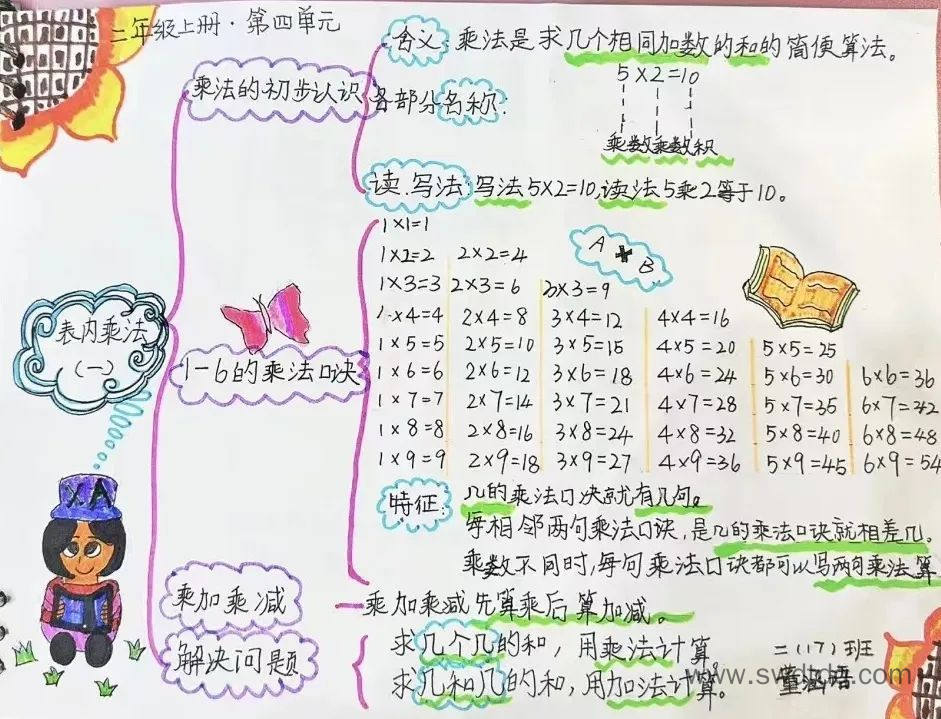 二年级上册·第四单元
表内乘法
(一)
XA
乘法的初步认识
含义:乘法是求几个相同加数的和的简便算法。
各部分名称:
5×2=10
乘数 乘数 积
读.写法:写法5×2=10,读法5乘2等于10。
1-6的乘法口诀
A * B
1×1=1
1×2=2 2×2=4
1×3=3 2×3=6 3×3=9
1×4=4 2×4=8 3×4=12 4×4=16
1×5=5 2×5=10 3×5=15 4×5=20 5×5=25
1×6=6 2×6=12 3×6=18 4×6=24 5×6=30 6×6=36
1×7=7 2×7=14 3×7=21 4×7=28 5×7=35 6×7=42
1×8=8 2×8=16 3×8=24 4×8=32 5×8=40 6×8=48
1×9=9 2×9=18 3×9=27 4×9=36 5×9=45 6×9=54
特征:几的乘法口决就有几句。
每相邻两句乘法口诀,是几的乘法口诀就相差几。
乘数不同时,每句乘法口诀都可以写两句乘法算
乘加乘减 — 乘加乘减先算乘后算加减。
解决问题
求几个几的和,用乘法计算。
求几和几的和,用加法计算。
二(17)班
董涵语